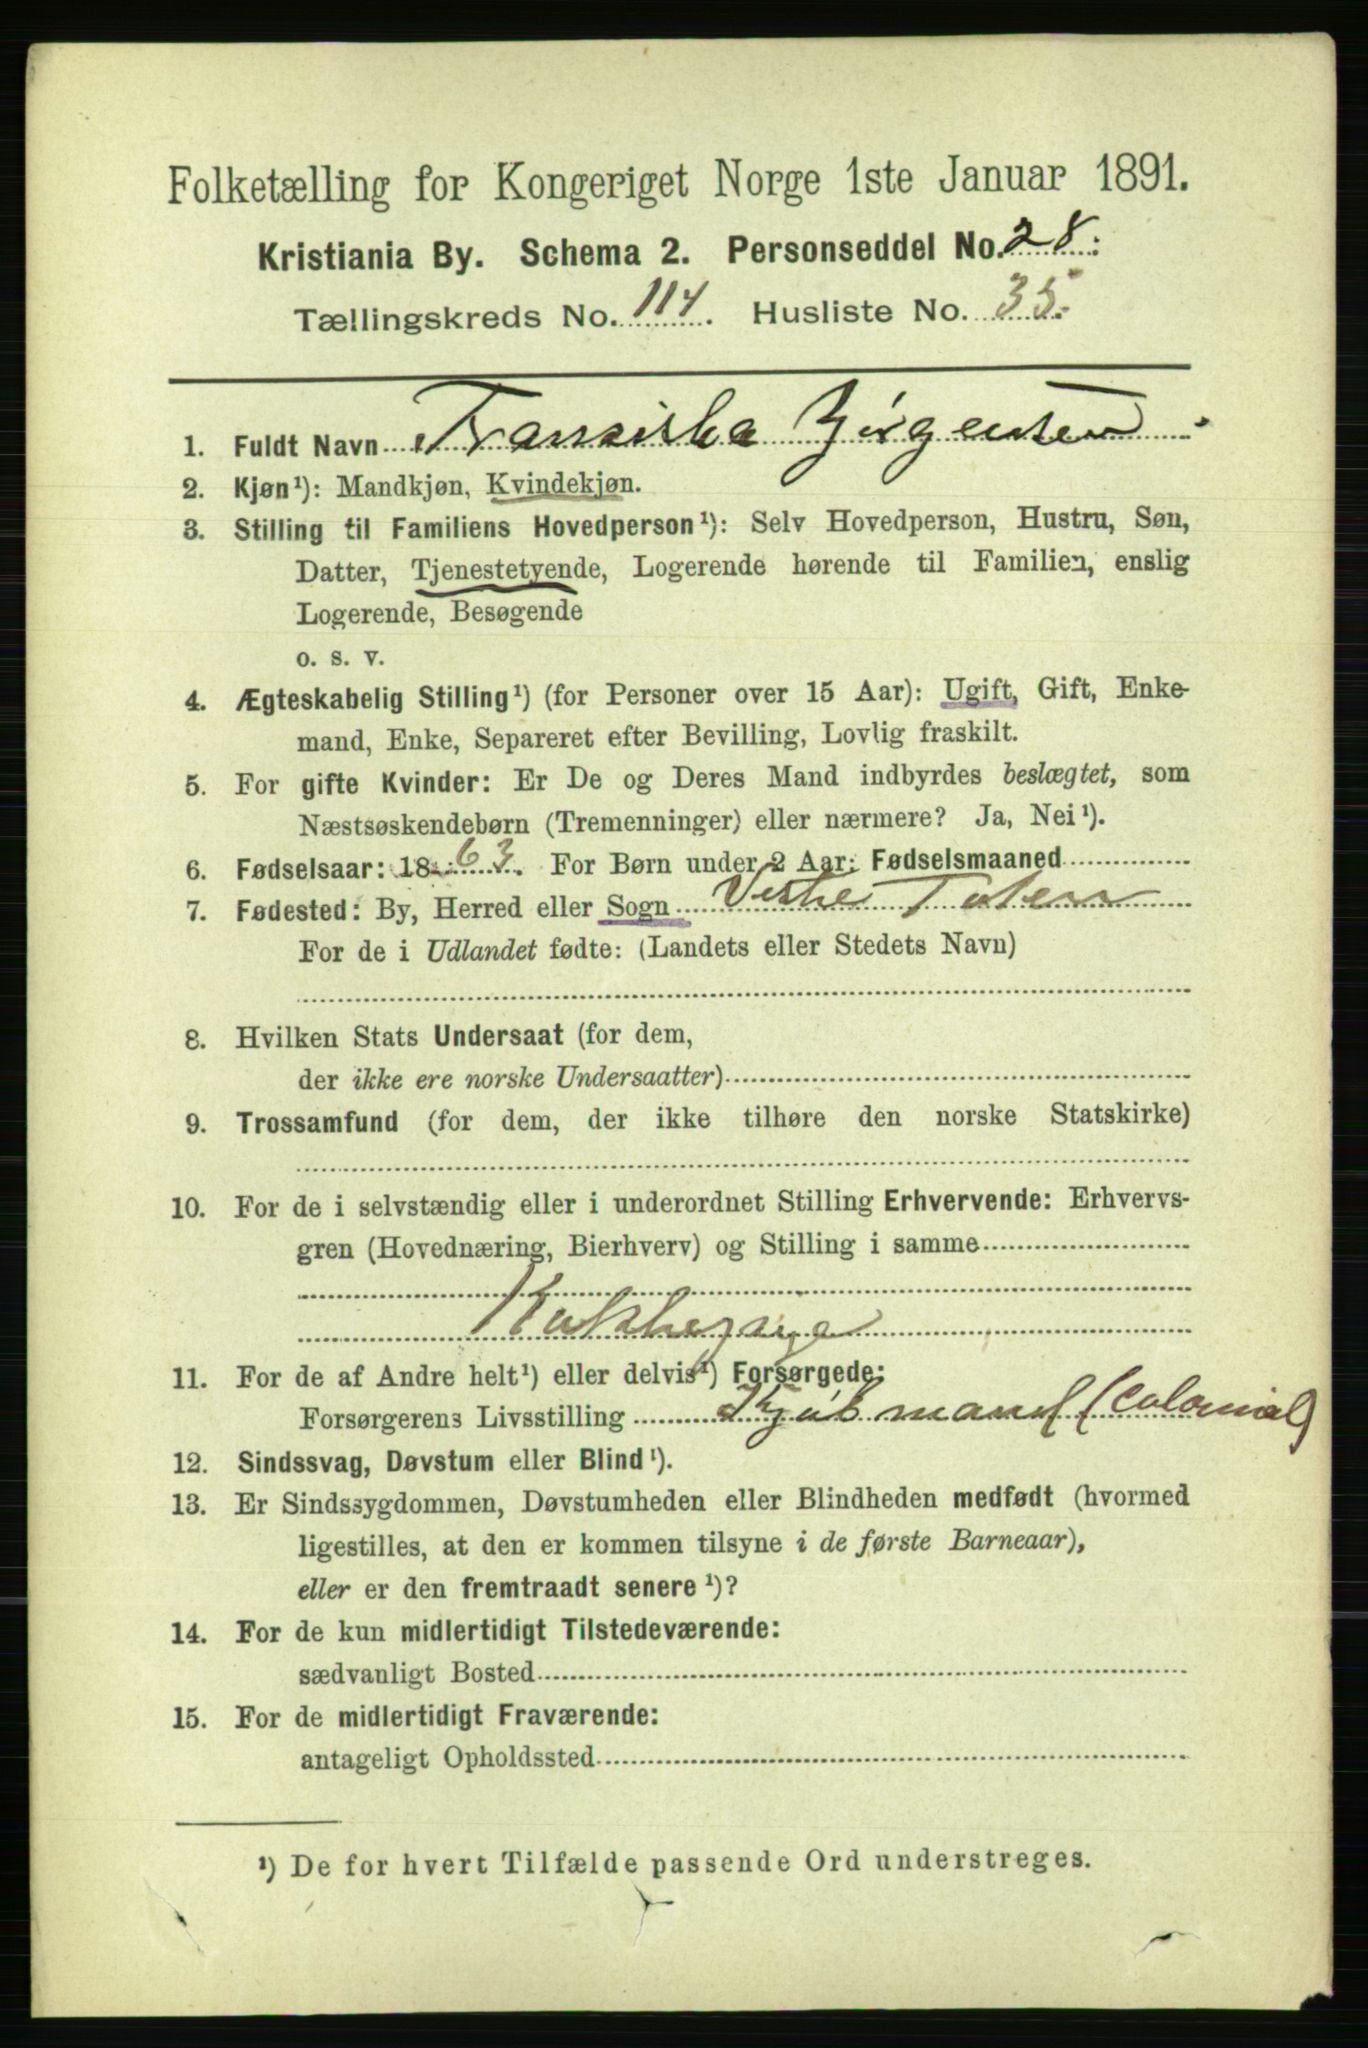 Folketælling for Kongeriget Norge 1ste Januar 1891.
Kristiania By. Schema 2. Personseddel No. 28.
Tællingskreds No. 114. Husliste No. 35.
1. Fuldt Navn Fransiska Jörgensen
2. Kjøn¹): Mandkjøn, Kvindekjøn.
3. Stilling til Familiens Hovedperson¹): Selv Hovedperson, Hustru, Søn,
Datter, Tjenestetyende, Logerende hørende til Familien, enslig
Logerende, Besøgende
o. s. v.
4. Ægteskabelig Stilling¹) (for Personer over 15 Aar): Ugift, Gift, Enke-
mand, Enke, Separeret efter Bevilling, Lovlig fraskilt.
5. For gifte Kvinder: Er De og Deres Mand indbyrdes beslægtet, som
Næstsøskendebørn (Tremenninger) eller nærmere? Ja, Nei¹).
6. Fødselsaar: 1863. For Børn under 2 Aar: Fødselsmaaned
7. Fødested: By, Herred eller Sogn Vestre Toten
For de i Udlandet fødte: (Landets eller Stedets Navn)
8. Hvilken Stats Undersaat (for dem,
der ikke ere norske Undersaatter)
9. Trossamfund (for dem, der ikke tilhøre den norske Statskirke)
10. For de i selvstændig eller i underordnet Stilling Erhvervende: Erhvervs-
gren (Hovednæring, Bierhverv) og Stilling i samme
Kokkepige
11. For de af Andre helt¹) eller delvis¹) Forsørgede:
Forsørgerens Livsstilling Kjöbmand (Colonial)
12. Sindssvag, Døvstum eller Blind¹).
13. Er Sindssygdommen, Døvstumheden eller Blindheden medfødt (hvormed
ligestilles, at den er kommen tilsyne i de første Barneaar),
eller er den fremtraadt senere¹)?
14. For de kun midlertidigt Tilstedeværende:
sædvanligt Bosted
15. For de midlertidigt Fraværende:
antageligt Opholdssted
¹) De for hvert Tilfælde passende Ord understreges.